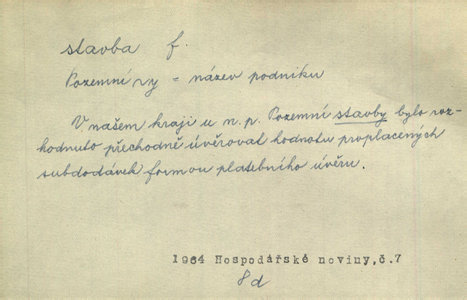 stavba f.
Pozemní vy = název podniku
V našem kraji u n. p. Pozemní stavby bylo roz-
hodnuto přechodně úvěrovat hodnotu proplacených
subdodávek formou platebního úvěru.
1964 Hospodářské noviny,č.7
8d